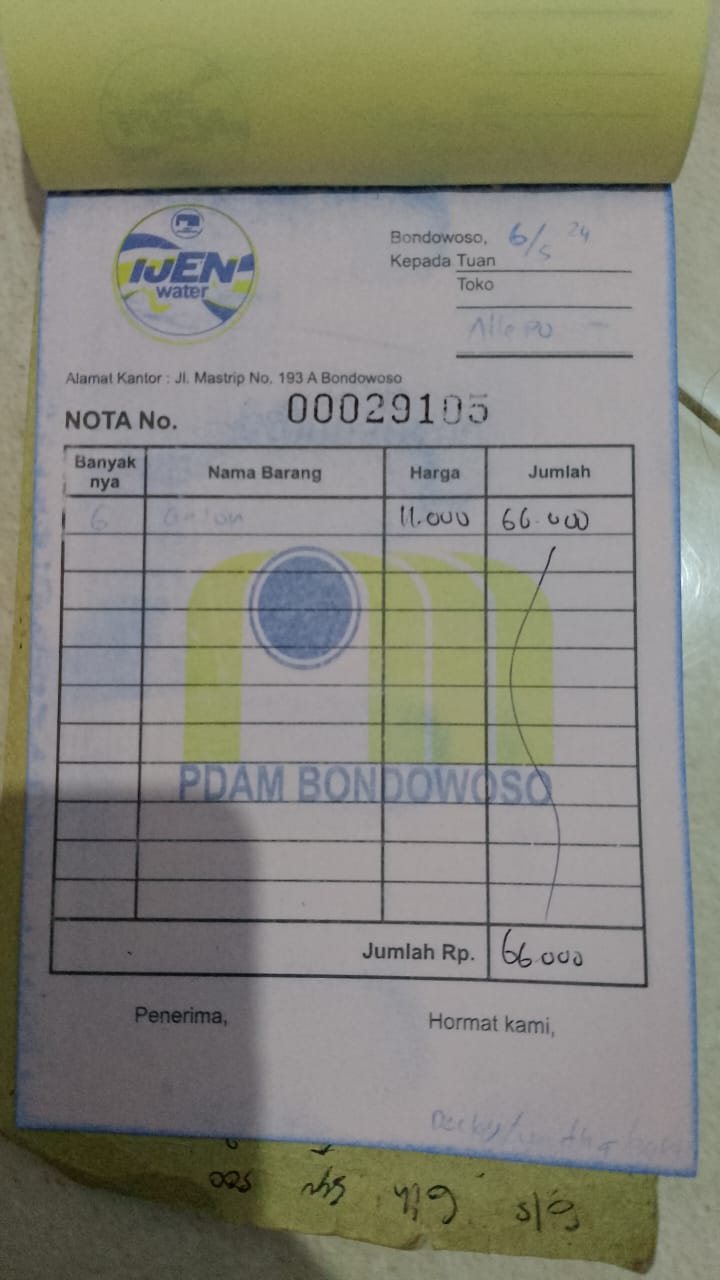 IJEN
water
Bondowoso, 6/5 24
Kepada Tuan
Toko
Alamat Kantor : Jl. Mastrip No. 193 A Bondowoso
NOTA No. 00029105
Banyak nya Nama Barang Harga Jumlah
6 Galon 11.000 66.000
PDAM BONDOWOSO
Jumlah Rp. 66.000
Penerima, Hormat kami,